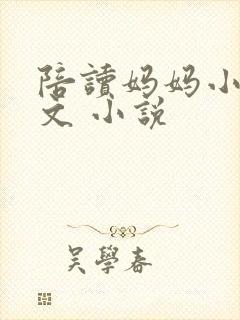 陪讀妈妈小
文 小説
吴學春